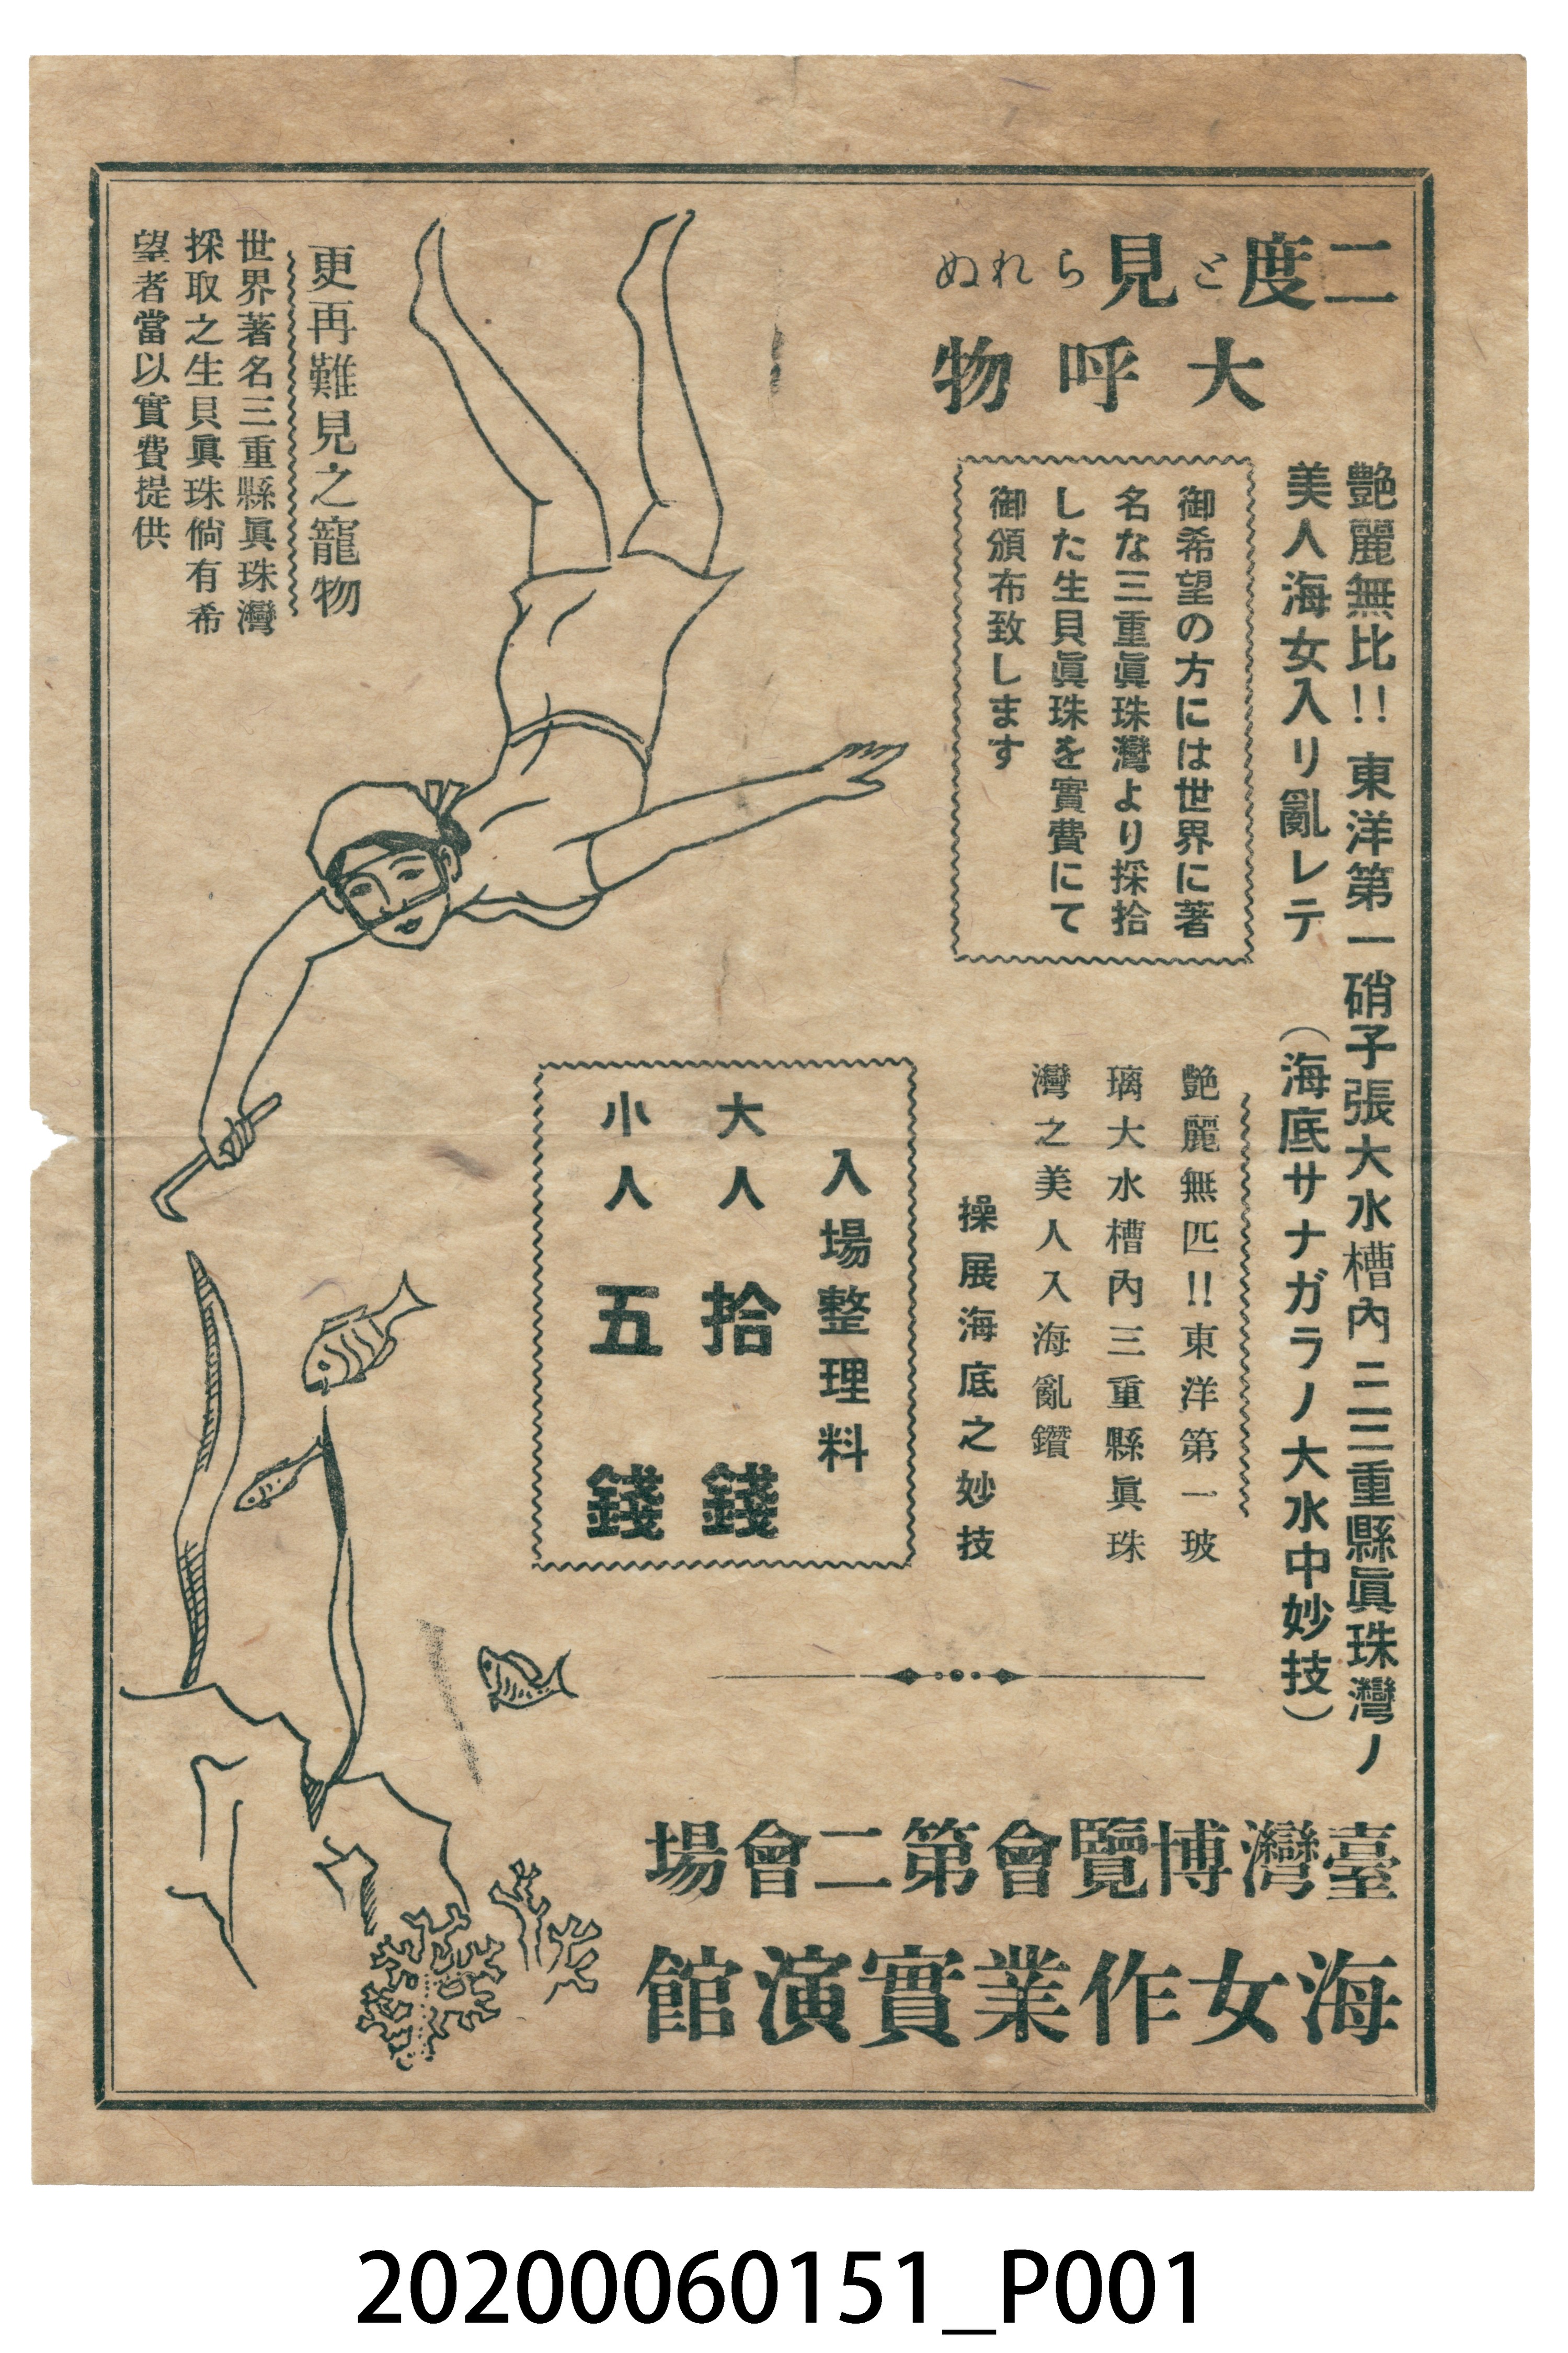 二度と見られぬ
大呼物
艶麗無比!! 東洋第一硝子張大水槽內ニ三重縣眞珠灣ノ
美人海女入リ亂レテ（海底サナガラノ大水中妙技）
御希望の方には世界に著
名な三重眞珠灣より採拾
した生貝眞珠を實費にて
御頒布致します
艶麗無匹!!東洋第一玻
璃大水槽內三重縣眞珠
灣之美人入海亂鑽
操展海底之妙技
入場整理料
大人 拾錢
小人 五錢
更再難見之寵物
世界著名三重縣眞珠灣
採取之生貝眞珠倘有希
望者當以實費提供
臺灣博覽會第二會場
海女作業實演館
20200060151_P001